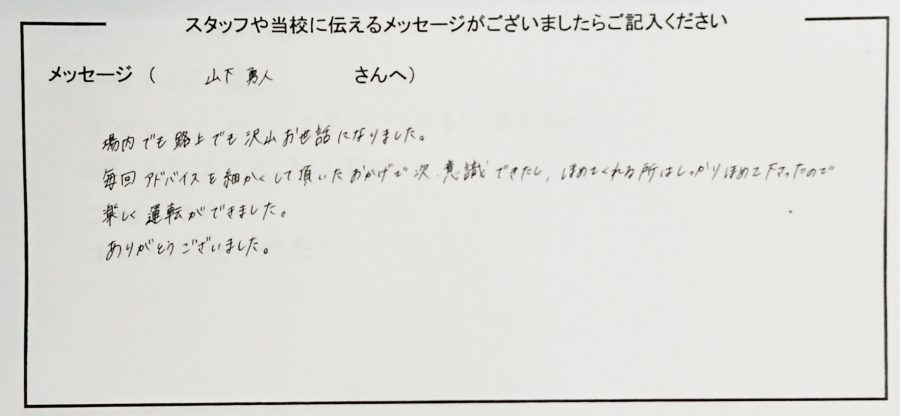 スタッフや当校に伝えるメッセージがございましたらご記入ください
メッセージ ( 山下 勇人 さんへ)
場内でも路上でも沢山お世話になりました。
毎回アドバイスを細かくして頂いたおかげで次、意識できたし、ほめてくれる所はしっかりほめて下さったので
楽しく運転ができました。
ありがとうございました。